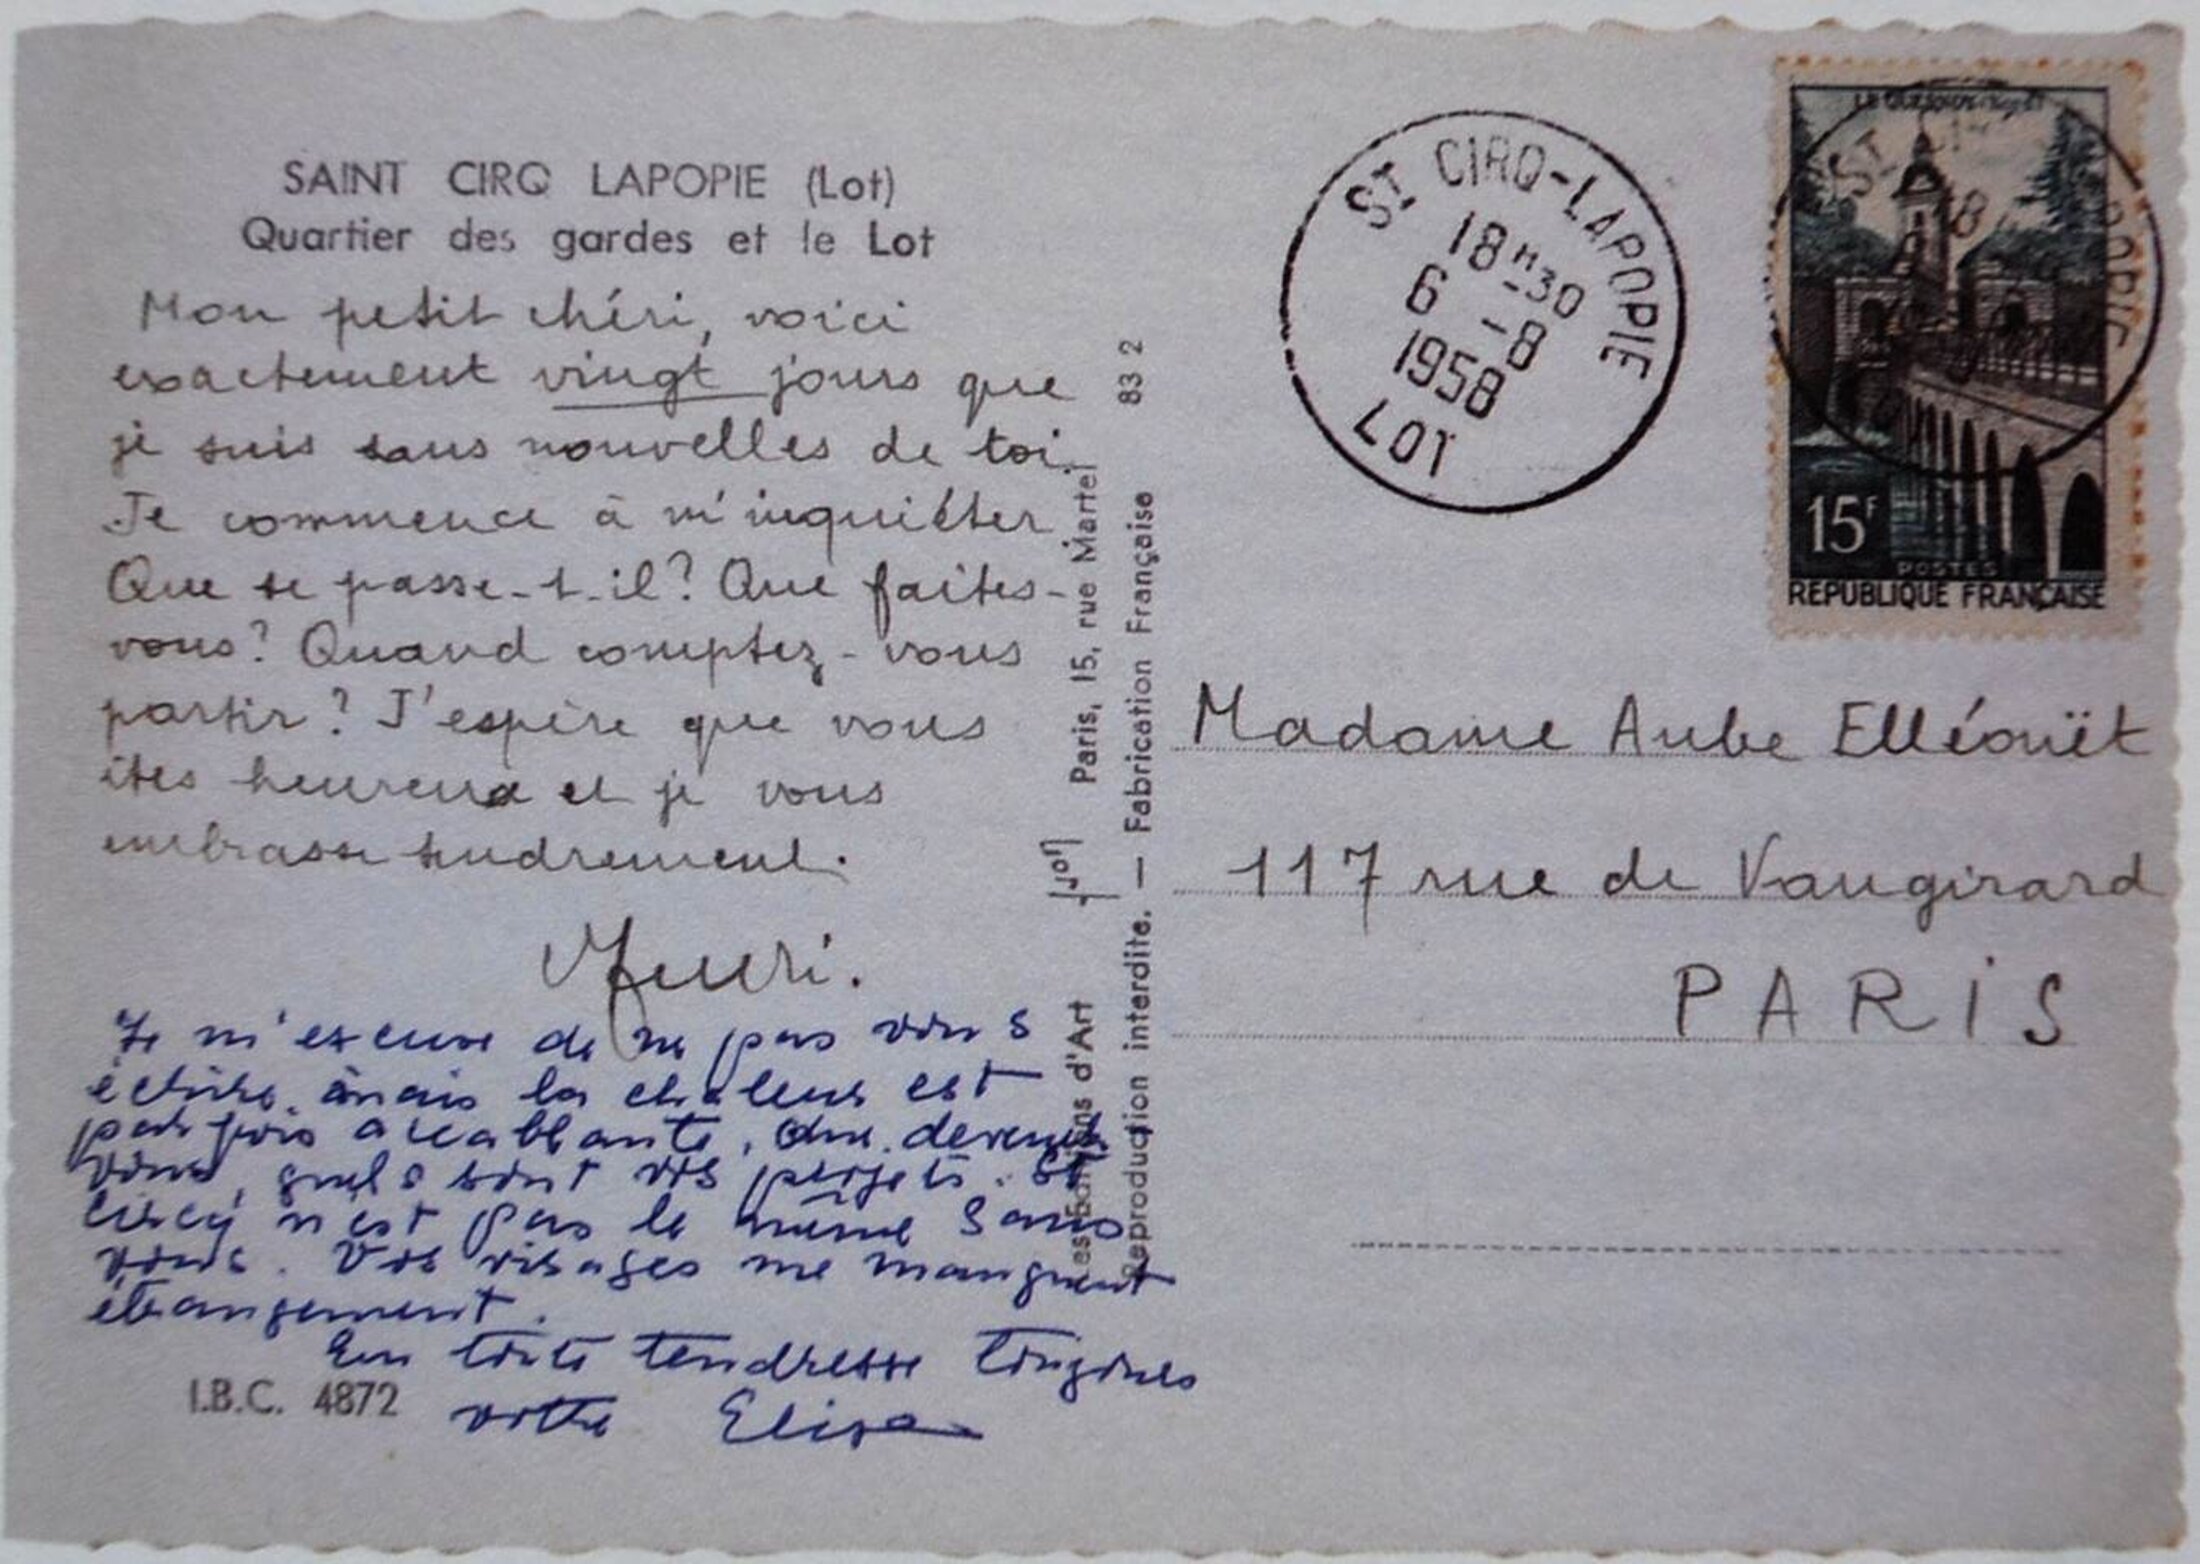 SAINT CIRQ LAPOPIE (Lot)
Quartier des gardes et le Lot
Mon petit chéri, voici
exactement vingt jours que
je suis sans nouvelles de toi.
Je commence à m'inquiéter
Que se passe-t-il? Que faites-
vous? Quand comptez-vous
partir? J'espère que vous
êtes heureux et je vous
embrasse tendrement.
Je m'excuse de ne pas vous
écrire, mais la chaleur est
parfois accablante, que devenez
vous, quels sont vos projets. St
Circq n'est pas le même sans
vous. Vos visages me manquent
étrangement.
En toute tendresse toujours
votre Elisa
I.B.C. 4872
Les Editions d'Art Paris, 15, rue Martel 83 2
Reproduction interdite. — Fabrication Française
ST CIRQ-LAPOPIE
18H30
6 -8
1958
LOT
15F
POSTES
REPUBLIQUE FRANÇAISE
Madame Aube Elléouët
117 rue de Vaugirard
PARIS